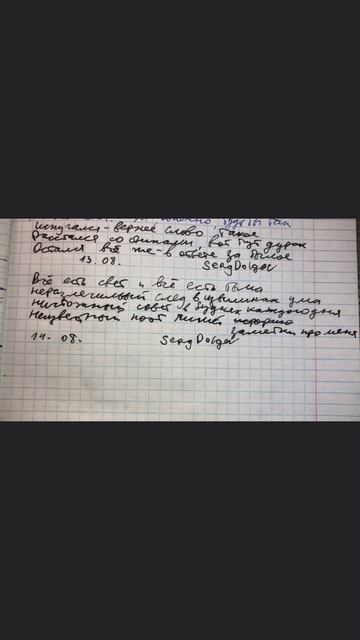 испугался - верное слово, такое
Расстался со стихами, вот тут дурак
Остался всё же - в ответе за былое
13.08. SergDolgov
Всё есть свет и всё есть тьма
неразличимый след в извилинах ума
ничтожный совет в буднях каждого дня
Неизвестный поэт пишет
заметки про меня
14.08. SergDolgov